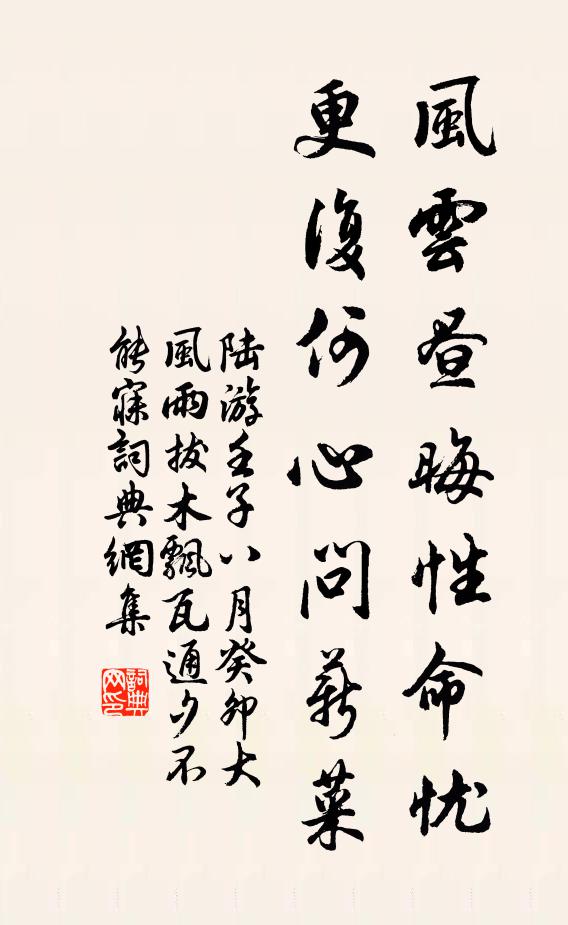 風雲晝晦性命憂
更復何心問薪菜
陸游壬子八月癸卯大
風雨拔木飄瓦通夕不
能寐詞典網集
詞典网印